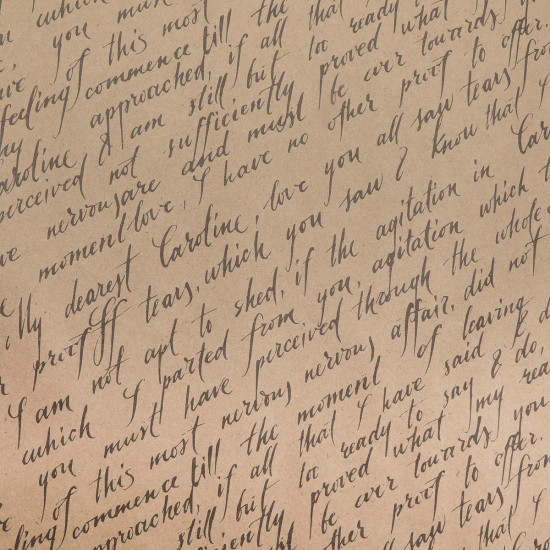 which
you must
of this most
feeling commence till the
approached, if all that
Caroline & am still but too ready
perceived not sufficiently proved what
nervous are and must be ever towards
moment love, I have no other proof to offer.
My dearest Caroline, love you all saw tears from
proof of tears, which you saw & know that I
I am not apt to shed, if the agitation in
which I parted from you, agitation which
you must have perceived through the whole
of this most nervous nervous affair, did not
feeling commence till the moment of leaving
approached, if all that I have said &
still but too ready to say & do,
sufficiently proved what my
must be ever towards you
other proof to offer.
all saw tears from